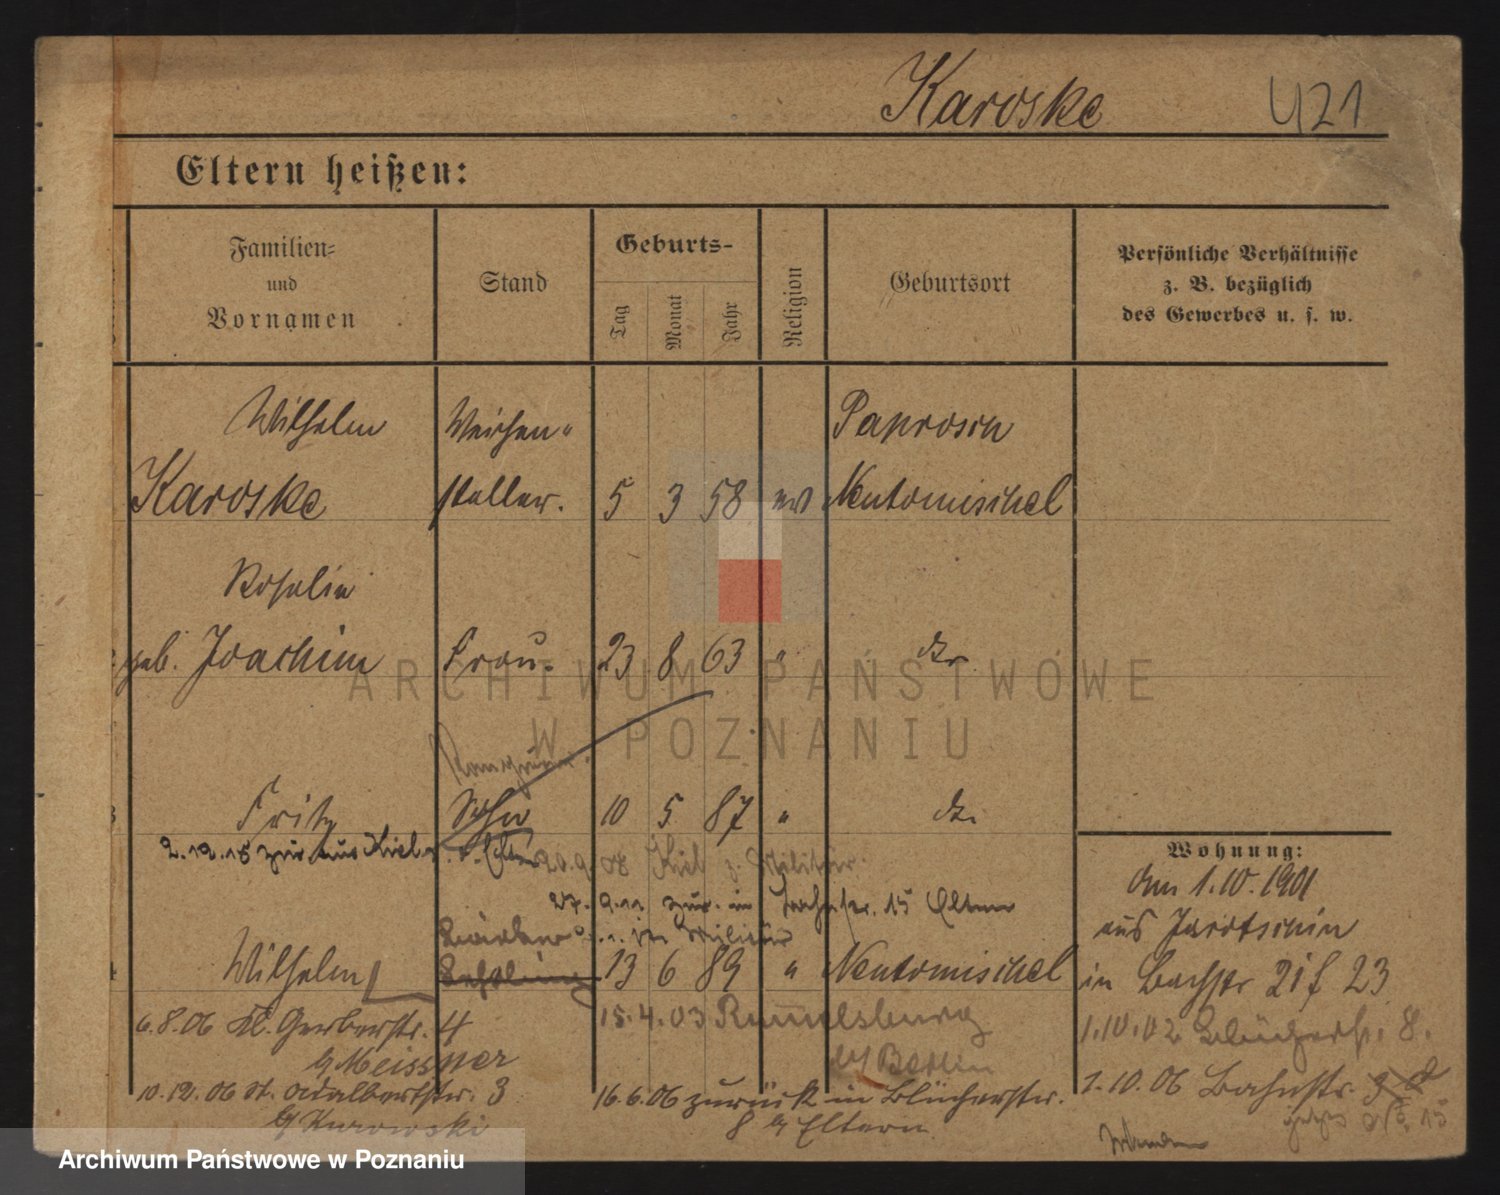 Karoske 421
Eltern heißen:
Familien-
und
Vornamen
Stand
Geburts-
Tag
Monat
Jahr
Religion
Geburtsort
Persönliche Verhältnisse
z. B. bezüglich
des Gewerbes u. s. w.
Wilhelm Weichen- Paprosch
Karoske steller. 5 3 58 ev Neutomischel
Rosalie
geb. Joachim Frau. 23 8 63 " do.
Fritz Sohn 10 5 87 " do.
2.12.18 zur. aus Kiel z. Eltern
20.9.08 Kiel z. Militär.
27.9.11 zur. in Bahnstr. 15 Eltern
z. Militär
Wilhelm 13 6 89 " Neutomischel
6.8.06 Kl. Gerberstr. 4
b/Meissner
10.12.06 St. Adalbertstr. 3
b/Kurowski
15.4.03 Rummelsburg
b/Berlin
16.6.06 zurück in Blücherstr.
8 b/Eltern
Wohnung:
Am 1.10.1901
aus Jarotschin
in Bachstr 21 f 23
1.10.02 Blücherstr. 8.
1.10.06 Bahnstr.
jetzt No. 15
ARCHIWUM PAŃSTWOWE
W POZNANIU
Archiwum Państwowe w Poznaniu